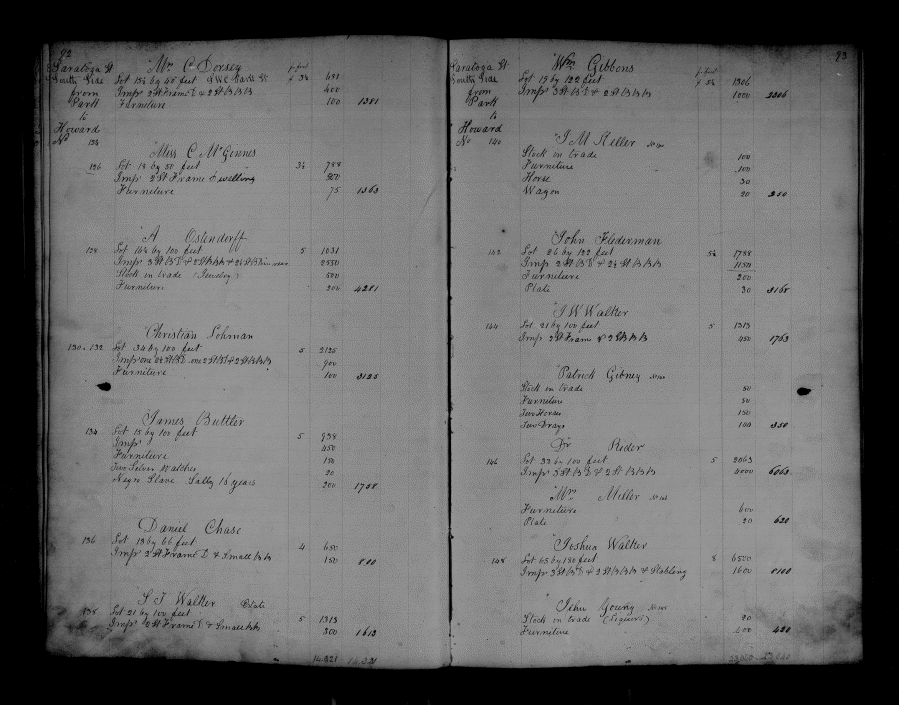 92
Saratoga St
South Side
from
Park
to
Howard
No
Mrs C. Dorsey
Lot by 40 feet 681
Imps 2 St Frame D & 2 St B B B 400
Furniture 100 1381
Miss C. McGinnes
126 Lot 18 by 50 feet 3½ 788
Imps 2 St Frame Dwelling
Furniture 75 1363
A Ostendorff
128 Lot 16½ by 100 feet 5 1031
Imps 3 St B D & 2 St B B & 2½ St B in rear 2550
Stock in trade (Jewelry) 500
Furniture 200 4281
Christian Lohman
130 & 132 Lot 34 by 100 feet 5 2125
Imps one 2½ St B D one 2 St B D & 2 St B B B 900
Furniture 100 3125
James Buttler
134 Lot 15 by 100 feet 5 938
Imps 450
Furniture 150
Two Silver Watches 20
Negro Slave Sally 16 years 200 1758
Daniel Chase
136 Lot 13 by 66 feet 4 650
Imps 2 St Frame D & Small B B 150 800
S. J. Walker Estate
138 Lot 21 by 100 feet 5 1313
Imps 2 St Frame D & Small B B 300 1613
14.321 14.321
93
Saratoga St
South Side
from
Park
to
Howard
No 140
Wm Gibbons
Lot 19 by 122 feet 1306
Imps 3 St B D & 2 St B B B 1000 2306
J M Keller No 140
Stock in trade 100
Furniture 100
Horse 30
Wagon 20 250
John Flederman
142 Lot 26 by 122 feet 5½ 1788
Imps 2 St B D & 2½ St B B B 1150
Furniture 200
Plate 30 3168
J W Walker
144 Lot 21 by 100 feet 5 1313
Imps 2 St Frame & 2 St B B 450 1763
Patrick Gibney
Stock in trade 50
Furniture 50
Two Horses 150
Two Drays 100 350
Dr Rider
146 Lot 33 by 100 feet 5 2063
Imps 3 St B D & 2 St B B B 4000 6063
Mrs Miller
Furniture 600
Plate 20 620
Joshua Walker
148 Lot 65 by 150 feet 8 6500
Imps 3 St B D & 2 St B B B & Stabling 1600 8100
John Young
Stock in trade (Segars) 20
Furniture 400 420